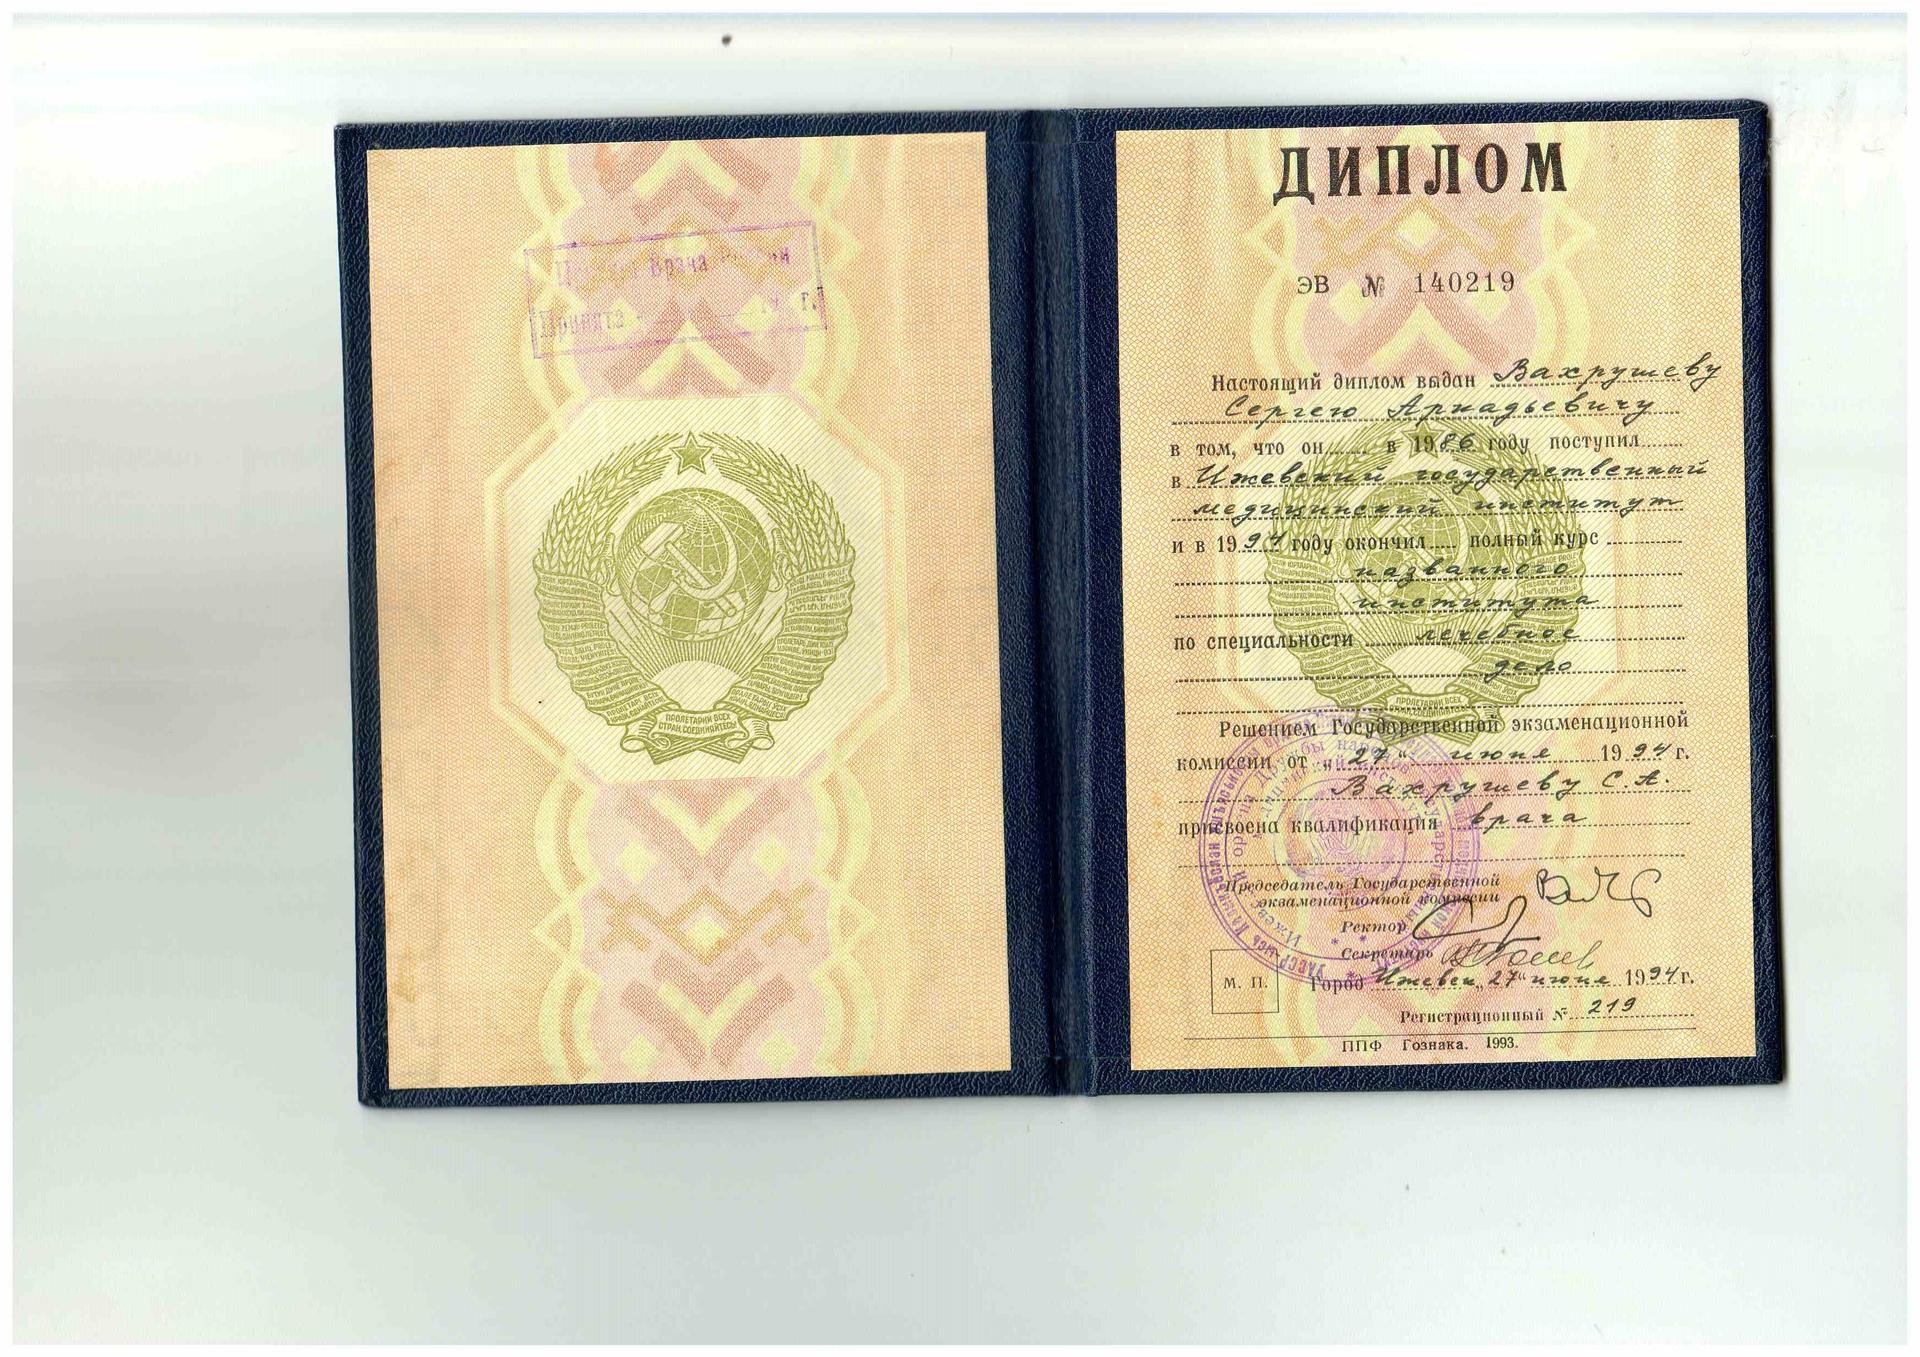 Врача
Принята
г.
ПРОЛЕТАРИИ ВСЕХ
СТРАН, СОЕДИНЯЙТЕСЬ!
ДИПЛОМ
ЭВ № 140219
Настоящий диплом выдан Вахрушеву
Сергею Аркадьевичу
в том, что он в 1986 году поступил
в Ижевский государственный
медицинский институт
и в 1994 году окончил полный курс
названного
института
по специальности лечебное
дело
Решением Государственной экзаменационной
комиссии от „27“ июня 1994 г.
Вахрушеву С.А.
присвоена квалификация врача
Председатель Государственной
экзаменационной комиссии
Ректор
Секретарь
М. П.
Город Ижевск „27“ июня 1994 г.
Регистрационный № 219
ППФ Гознака. 1993.